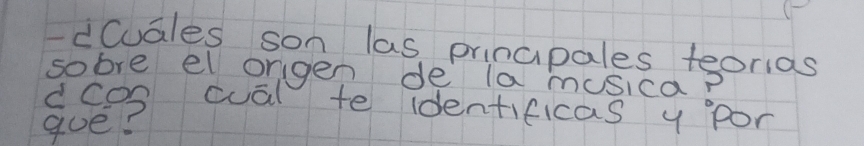 -¿Cuáles son las principales teorias
sobre el origen de la musica?
¿con cuál te identificas y por
qué?